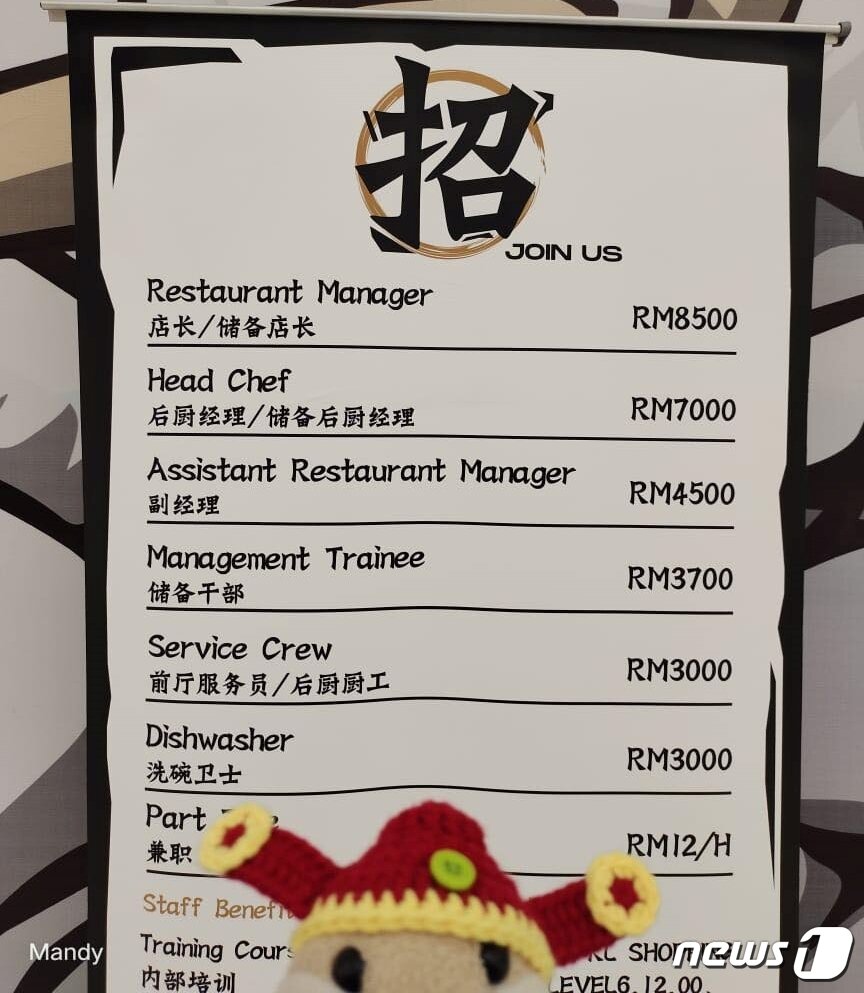 招
JOIN US
Restaurant Manager
店长/储备店长
RM8500
Head Chef
后厨经理/储备后厨经理
RM7000
Assistant Restaurant Manager
副经理
RM4500
Management Trainee
储备干部
RM3700
Service Crew
前厅服务员/后厨厨工
RM3000
Dishwasher
洗碗卫士
RM3000
Part
兼职
RM12/H
Staff
Training
内部培训
LEVEL6.12.00.
Mandy
news1